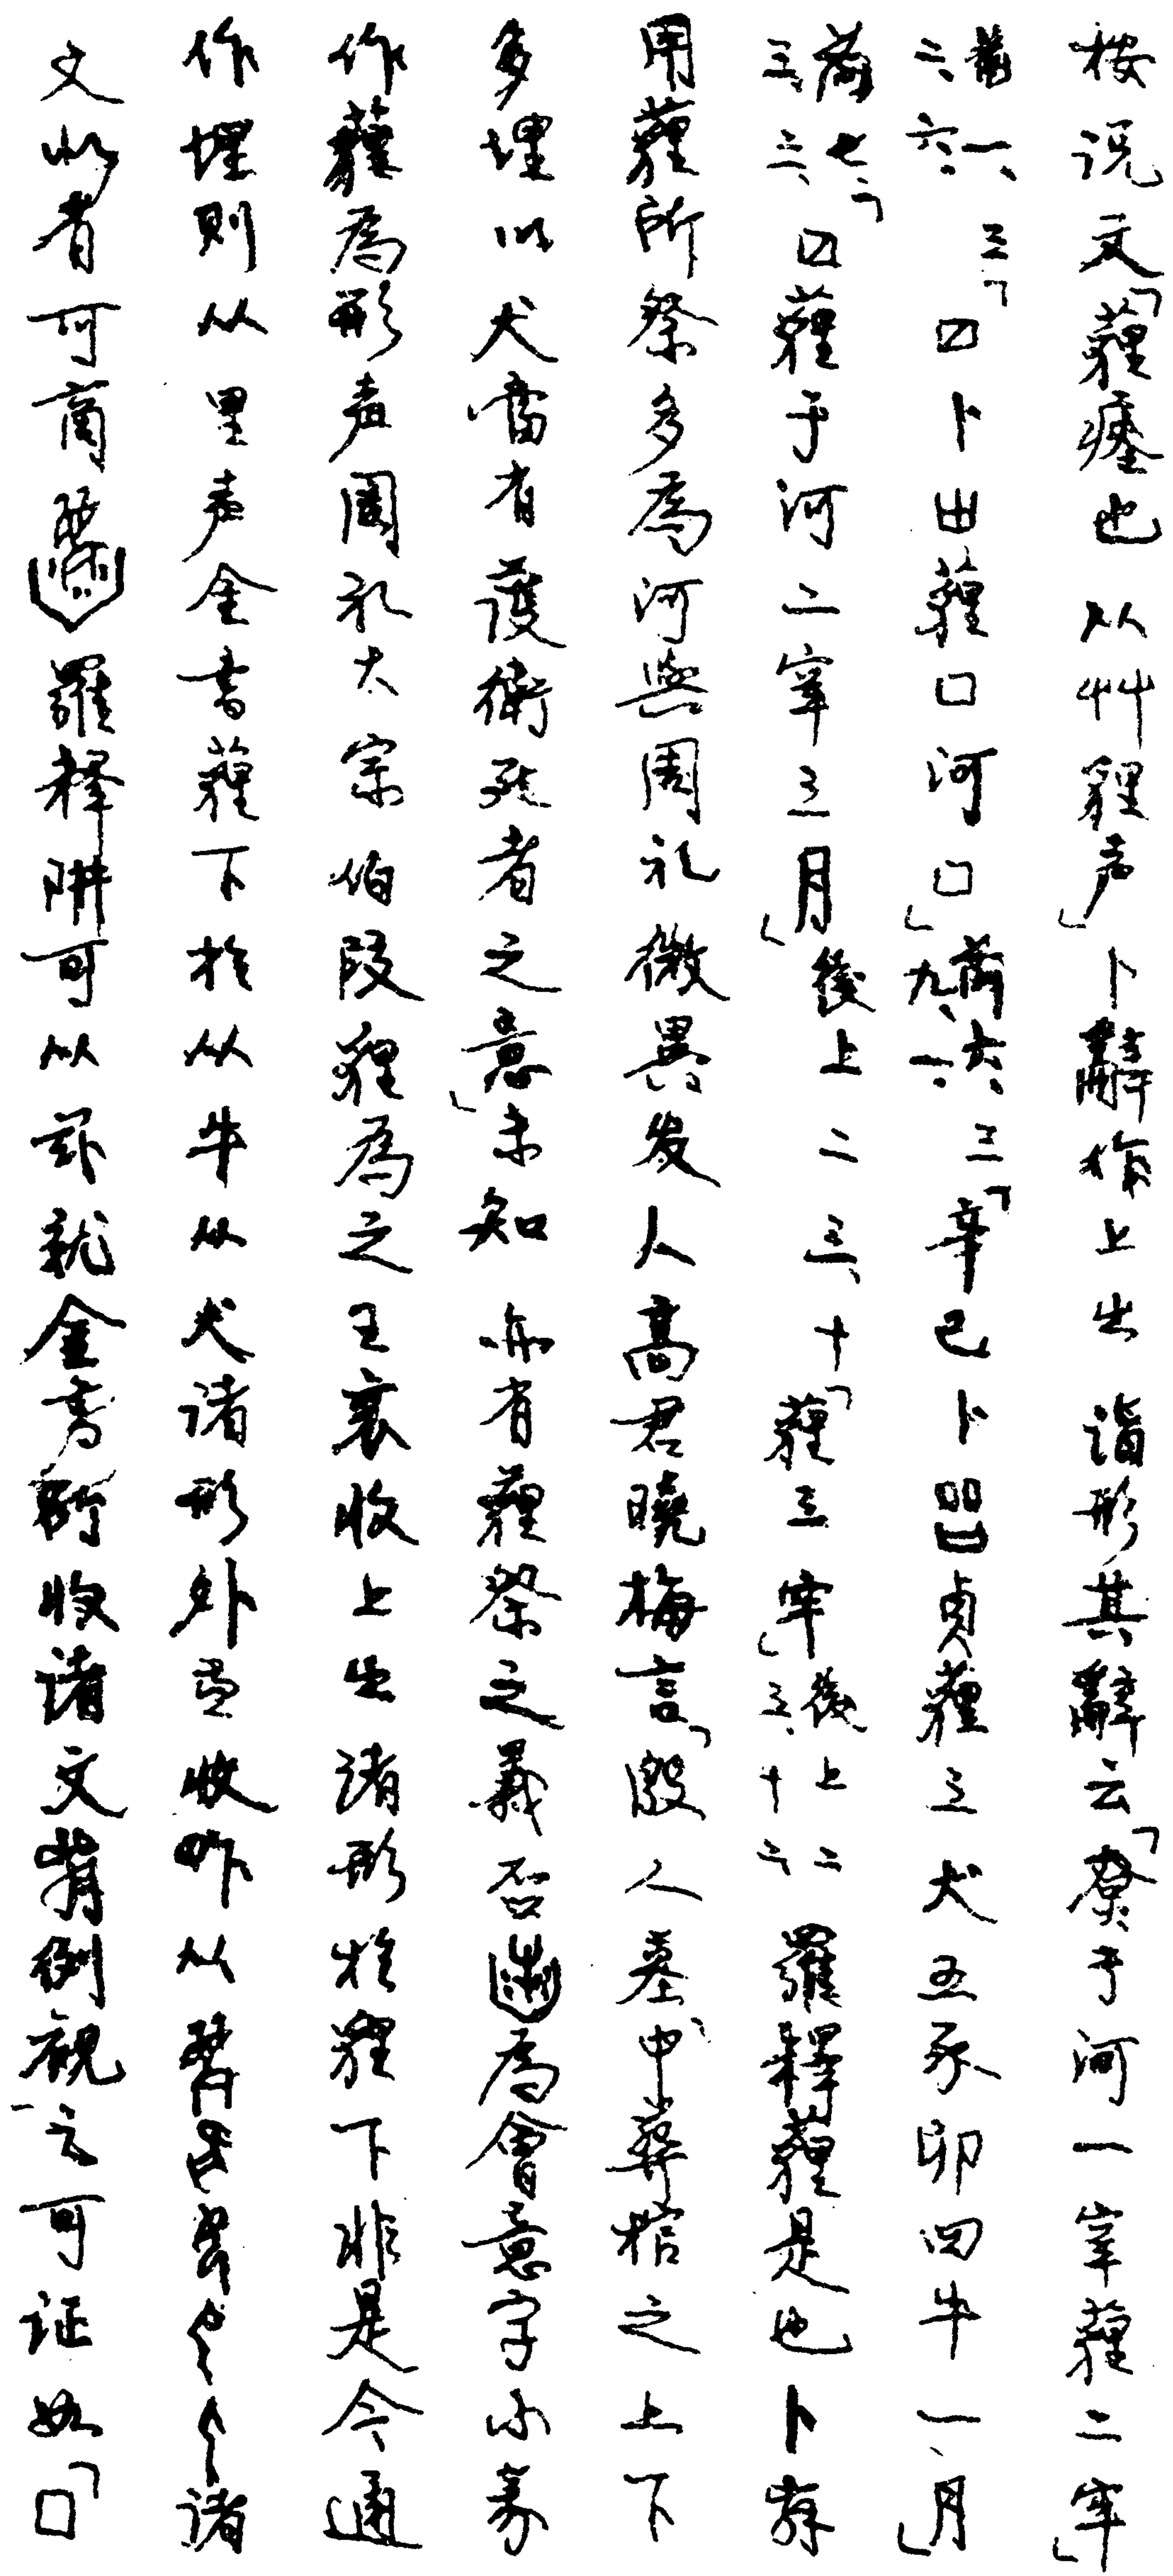 按说文「薶瘗也从艸貍声」卜辭作上出诣形其辭云「尞于河一宰薶二宰」
前一、三二、六、「囗卜㞢薶口河口」前六、三九、一、「辛巳卜㗊貞薶三犬五豕卯四牛一月」
前七、二三、三、「囗薶于河二宰三月」後上二三、十「薶三宰」後上二三、十二羅釋薶是也卜辞
用薶所祭多為河與周礼微異发人高君曉梅言「殷人墓中葬棺之上下
多埋以犬當有護衛死者之意」未知亦有薶祭之義否為會意字小篆
作薶為形声周礼大宗伯段貍為之王襄收上出诸形於貍下非是今通
作埋則从里声金書薶下於从牛从犬诸形外並收从诸
文以者可商羅釋阱可以就金書所收诸文前例觀之可证如「口